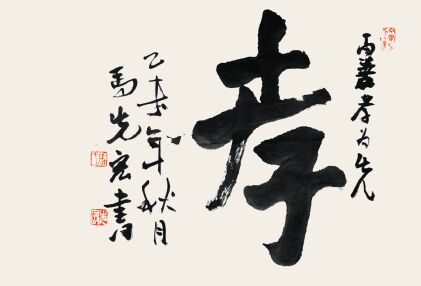 百善孝为先
孝
乙未年秋月
马先宏书